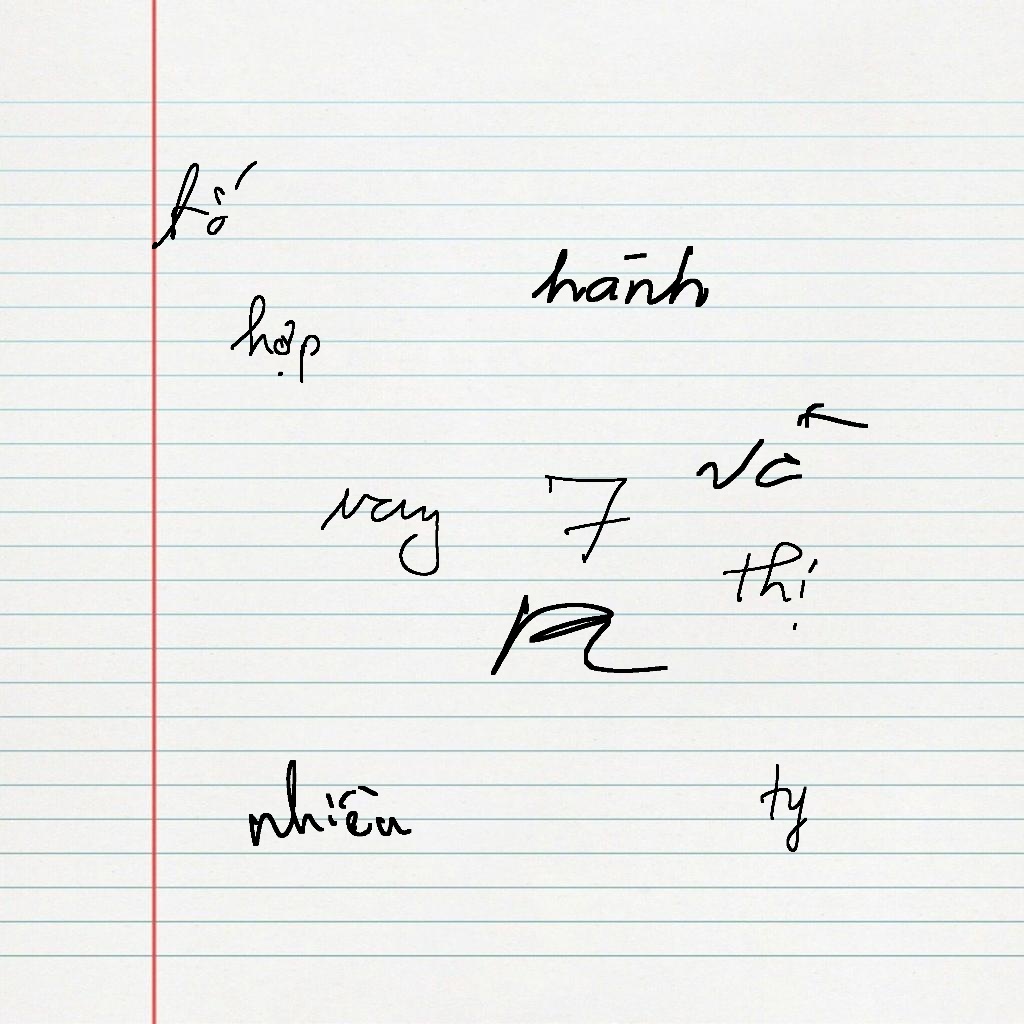 hành
hợp
và
vay 7
thị
nhiều
ty